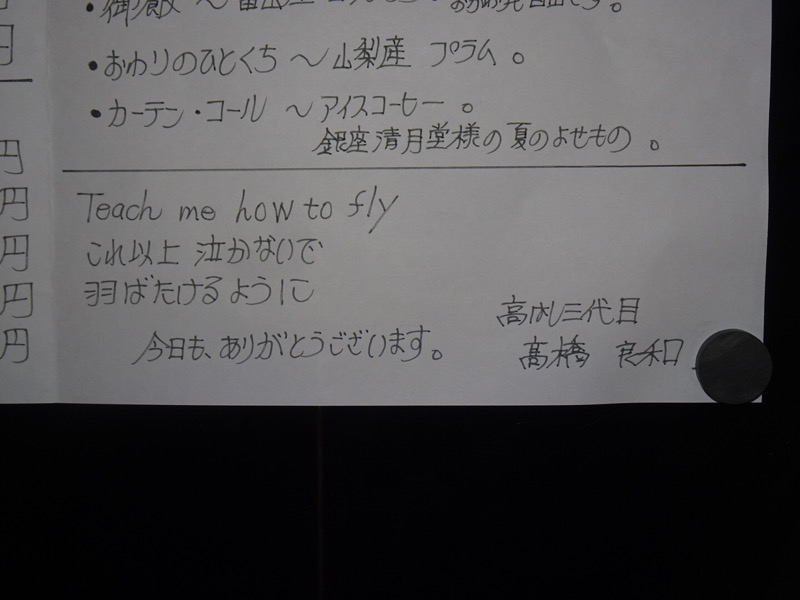 ・御飯 〜富山産
・おわりのひとくち 〜山梨産 プラム。
・カーテン・コール 〜アイスコーヒー。
銀座清月堂様の夏のよせもの。
円
円
円
円
円
円
Teach me how to fly
これ以上 泣かないで
羽ばたけるように
今日も、ありがとうございます。
高はし三代目
高橋 良和